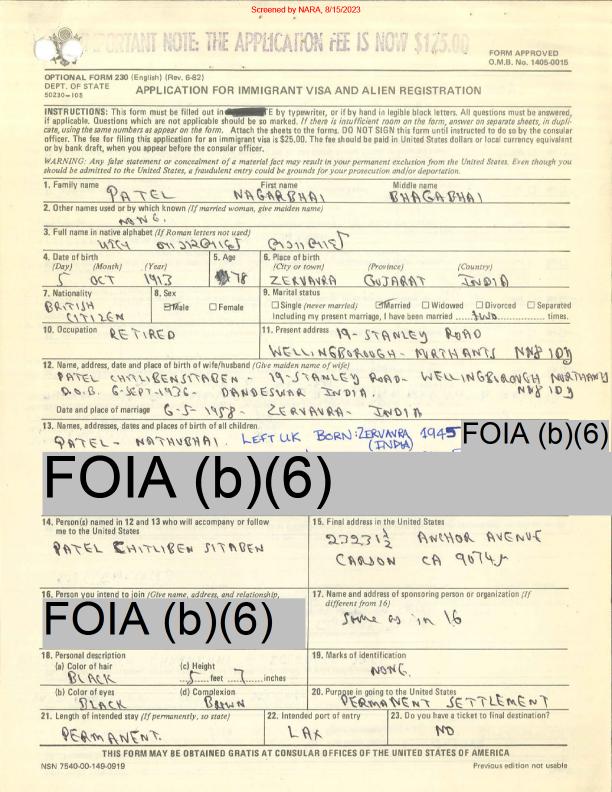 Screened by NARA, 8/15/2023
IMPORTANT NOTE: THE APPLICATION FEE IS NOW $175.00
FORM APPROVED
O.M.B. No. 1405-0015
OPTIONAL FORM 230 (English) (Rev. 6-82)
DEPT. OF STATE
50230-105
APPLICATION FOR IMMIGRANT VISA AND ALIEN REGISTRATION
INSTRUCTIONS: This form must be filled out in TE by typewriter, or if by hand in legible block letters. All questions must be answered,
if applicable. Questions which are not applicable should be so marked. If there is insufficient room on the form, answer on separate sheets, in dupli-
cate, using the same numbers as appear on the form. Attach the sheets to the forms. DO NOT SIGN this form until instructed to do so by the consular
officer. The fee for filing this application for an immigrant visa is $25.00. The fee should be paid in United States dollars or local currency equivalent
or by bank draft, when you appear before the consular officer.
WARNING: Any false statement or concealment of a material fact may result in your permanent exclusion from the United States. Even though you
should be admitted to the United States, a fraudulent entry could be grounds for your prosecution and/or deportation.
1. Family name First name Middle name
PATEL NAGARBHAI BHAGABHAI
2. Other names used or by which known (If married woman, give maiden name)
NONE.
3. Full name in native alphabet (If Roman letters not used)
પટેલ નાગરભાઈ ભગાભાઈ
4. Date of birth 5. Age 6. Place of birth
(Day) (Month) (Year) (City or town) (Province) (Country)
5 OCT 1913 78 ZERVAVRA GUJARAT INDIA
7. Nationality 8. Sex 9. Marital status
BRITISH CITIZEN
Male Female
Single (never married) Married Widowed Divorced Separated
Including my present marriage, I have been married two times.
10. Occupation RETIRED
11. Present address 19-STANLEY ROAD
WELLINGBOROUGH- NORTHANTS NN8 1DY
12. Name, address, date and place of birth of wife/husband (Give maiden name of wife)
PATEL CHITLIBENSITABEN - 19-STANLEY ROAD- WELLINGBOROUGH NORTHANTS
D.O.B. 6-SEPT-1936- DANDESWAR INDIA. NN8 1DY
Date and place of marriage 6-5-1958- ZERVAVRA- INDIA
13. Names, addresses, dates and places of birth of all children.
PATEL- NATHUBHAI. LEFT UK BORN: ZERVAVRA 1945 FOIA (b)(6)
(INDIA)
FOIA (b)(6)
14. Person(s) named in 12 and 13 who will accompany or follow
me to the United States
PATEL CHITLIBEN SITABEN
15. Final address in the United States
23231½ ANCHOR AVENUE
CARSON CA 90745
16. Person you intend to join (Give name, address, and relationship,
FOIA (b)(6)
17. Name and address of sponsoring person or organization (If
different from 16)
Same as in 16
18. Personal description
(a) Color of hair (c) Height
BLACK 5 feet 7 inches
(b) Color of eyes (d) Complexion
BLACK BROWN
19. Marks of identification
NONE.
20. Purpose in going to the United States
PERMANENT SETTLEMENT
21. Length of intended stay (If permanently, so state) 22. Intended port of entry 23. Do you have a ticket to final destination?
PERMANENT. LAX NO
THIS FORM MAY BE OBTAINED GRATIS AT CONSULAR OFFICES OF THE UNITED STATES OF AMERICA
NSN 7540-00-149-0919 Previous edition not usable